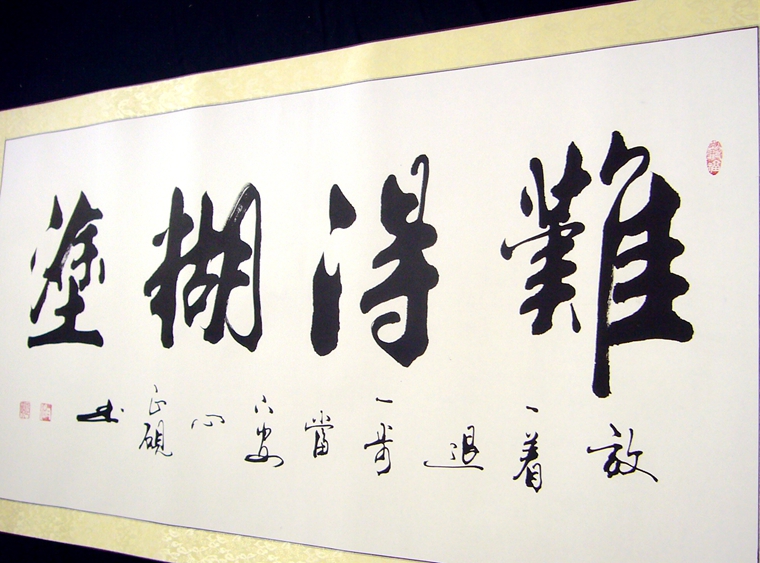 難得糊塗
放一着退一步當下安心 正硯书